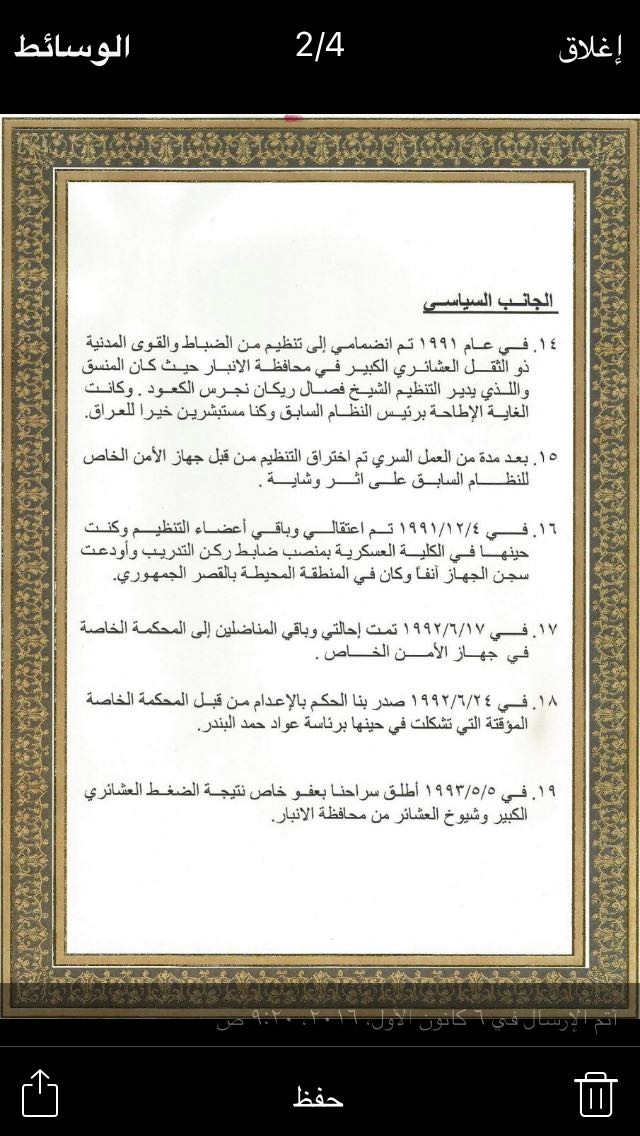 إغلاق
2/4
الوسائط
الجانب السياسي
١٤. في عام ١٩٩١ تم انضمامي إلى تنظيم من الضباط والقوى المدنية
ذو الثقل العشائري الكبير في محافظة الانبار حيث كان المنسق
واللذي يدير التنظيم الشيخ فصال ريكان نجرس الكعود . وكانت
الغاية الإطاحة برئيس النظام السابق وكنا مستبشرين خيرا للعراق.
١٥. بعد مدة من العمل السري تم اختراق التنظيم من قبل جهاز الأمن الخاص
للنظام السابق على اثر وشاية .
١٦. في ١٩٩١/١٢/٤ تم اعتقالي وباقي أعضاء التنظيم وكنت
حينها في الكلية العسكرية بمنصب ضابط ركن التدريب وأودعت
سجن الجهاز آنفاً وكان في المنطقة المحيطة بالقصر الجمهوري.
١٧. في ١٩٩٢/٦/١٧ تمت إحالتي وباقي المناضلين إلى المحكمة الخاصة
في جهاز الأمن الخاص .
١٨. في ١٩٩٢/٦/٢٤ صدر بنا الحكم بالإعدام من قبل المحكمة الخاصة
المؤقتة التي تشكلت في حينها برئاسة عواد حمد البندر.
١٩. في ١٩٩٣/٥/٥ أطلق سراحنا بعفو خاص نتيجة الضغط العشائري
الكبير وشيوخ العشائر من محافظة الانبار.
أتم الإرسال في ٦ كانون الأول، ٢٠١٦، ٩:٢٠ ص
حفظ